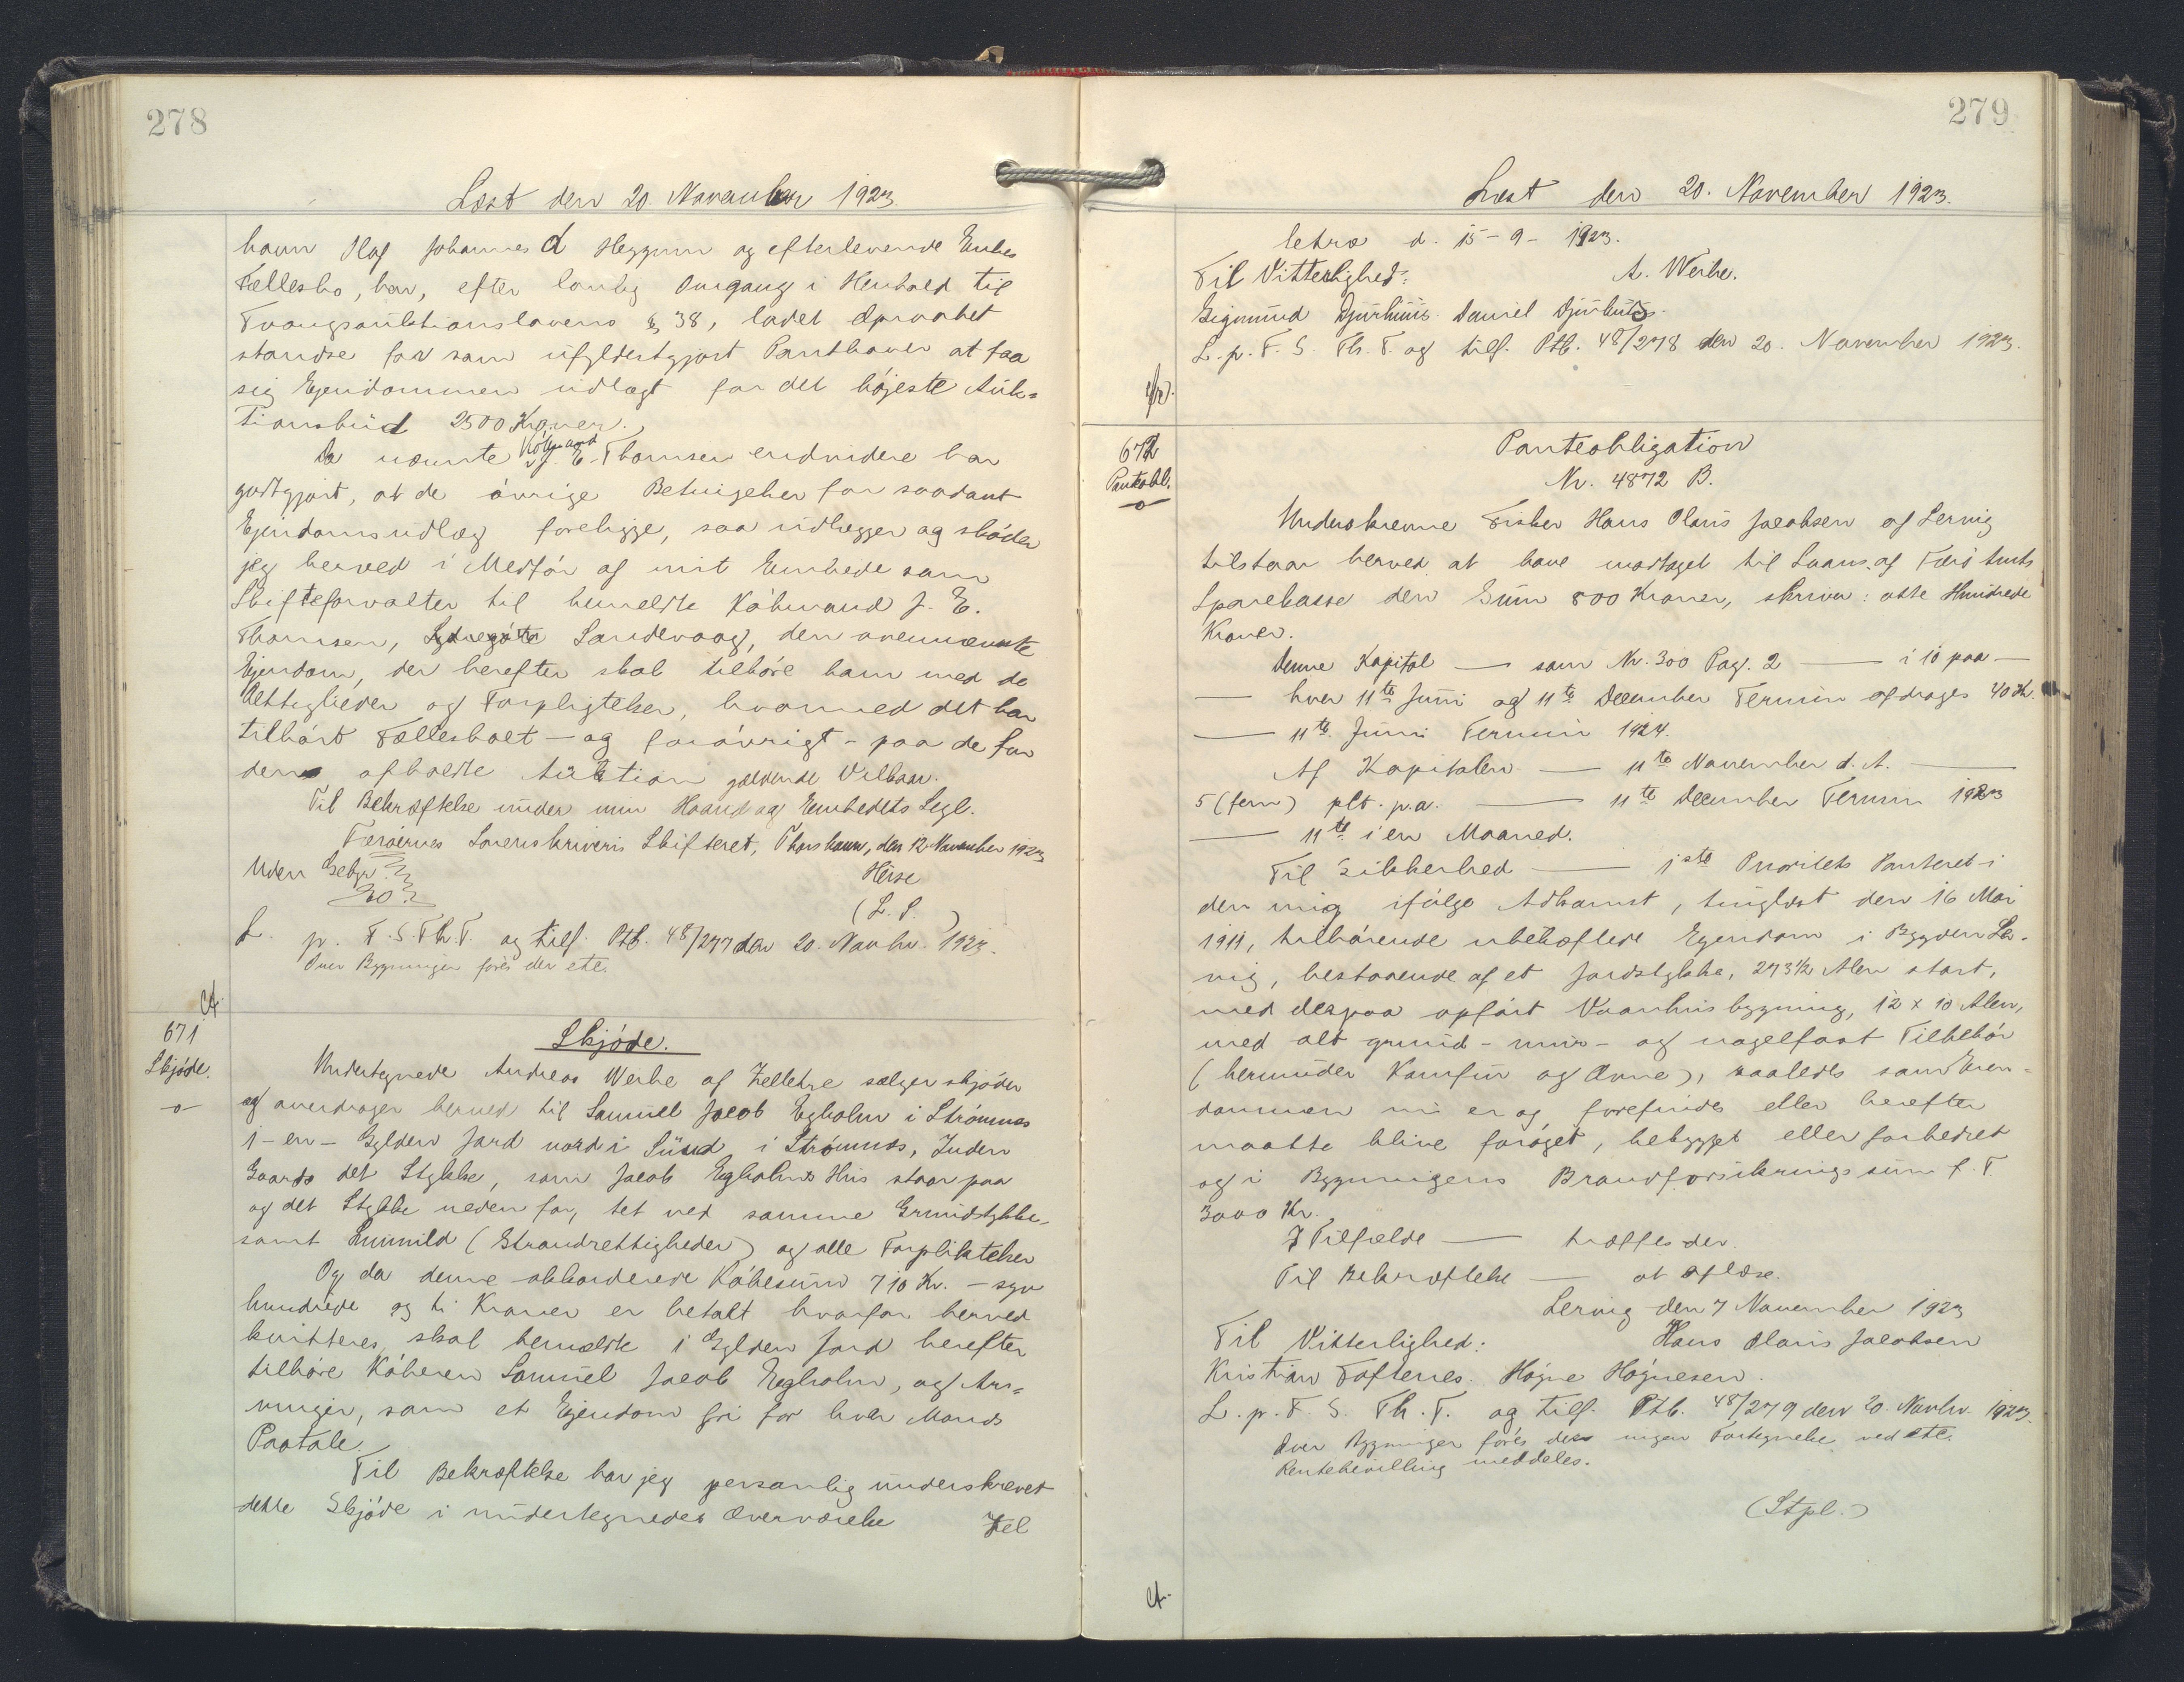 278
Læst den 20. November 1923.
havn Olaf Johannes d Heggum og efterlevende Enkes
Fællesbo, har, efter lovlig Omgang i Henhold til
Tvangsauktionslovens § 38, ladet Opraabet
standse for som ufyldestgjort Panthaver at faa
sig Ejendommen udlagt for det højeste Auk=
tionsbud 2500 Kroner.
Da nævnte Købmand J. E. Thomsen endvidere har
godtgjort, at de øvrige Betingelser for saadant
Ejendomsudlæg foreligge, saa udlægger og skøder
jeg herved i Medfør af mit Embede som
Skifteforvalter til bemeldte Købmand J. E.
Thomsen, Sandevaag, den ovennævnte
Ejendom, der herefter skal tilhøre ham med de
Rettigheder og Forpligtelser, hvormed det har
tilhørt Fællesboet – og forøvrigt – paa de for
den afholdte Auktion gældende Vilkaar.
Til Bekræftelse under min Haand og Embedets Segl.
Færøernes Sorenskriveris Skifteret, Thorshavn, den 12 November 1923
Uden Gebyr Heise
20 (L. S.)
L. p. F. S. Th. T. og tilf. Ptb. 48/277 den 20. Novbr. 1923.
Over Bygninger føres der etc.
Cf.
671
Skjøde.
–o–
Skjøde.
Undertegnede Andreas Weihe af Zelletræ sælger skjøder
og overdrager herved til Samuel Jacob Egholm i Strømnæs
1 – en – Gylden Jord nord i Sund i Strømnæs, Inden
Gaards det Stykke, som Jacob Egholms Hus staar paa
og det Stykke neden for, tet ved samme Grundstykke,
samt Lunnild (Strandrettigheder) og alle Forpliktelser
Og da denne akkorderede Købesum 710 Kr. – syv
hundrede og ti Kroner er betalt hvorfor herved
kvitteres, skal bemeldte 1 Gylden Jord herefter
tilhøre Køberen Samuel Jacob Egholm, og Ar=
vinger, som et Ejendom fri for hver Mands
Paatale.
Til Bekræftelse har jeg personlig underskrevet
dette Skjøde i undertegnedes Overværelse Zel
279
Læst den 20. November 1923.
letræ d. 15-9-1923.
Til Vitterlighed: A. Weihe.
Sigmund Djurhuus. Daniel Djurhuus.
L. p. F. S. Th. T. og tilf. Ptb. 48/278 den 20. November 1923.
672
Panteobl.
–o–
Panteobligation
Nr. 4872 B.
Underskrevne Fisker Hans Olaus Jacobsen af Lervig
tilstaar herved at have modtaget til Laans af Færø Amts
Sparekasse den Sum 800 Kroner, skriver: otte Hundrede
Kroner.
Denne Kapital — som Nr. 300 Pag. 2 — i 10 paa —
— hver 11te Juni og 11te December Termin afdrages 40 Kr.
— 11te Juni Termin 1924.
Af Kapitalen — 11te November d. A. —
5 (fem) pCt. p.a. — 11te December Termin 1923
— 11te i en Maaned.
Til Sikkerhed — 1ste Prioritets Panteret i
den mig ifølge Adkomst, tinglæst den 16 Mai
1911, tilhørende ubehæftede Ejendom i Bygden Ler-
vig, bestaaende af et Jordstykke, 273½ Alen stort,
med derpaa opført Vaanhusbygning, 12 x 10 Alen,
med alt grund- mur- og nagelfast Tilbehør
(herunder Komfur og Ovne), saaledes som Ejen=
dommen nu er og forefindes eller herefter
maatte blive forøget, bebygget eller forbedret
og i Bygningens Brandforsikringssum f. T
3000 Kr.
I Tilfælde — træffes der.
Til Bekræftelse — at aflæse.
Lervig den 7 November 1923
Til Vitterlighed: Hans Olaus Jacobsen
Kristian Toftenes. Høgne Høgnesen.
L. p. F. S. Th. T. og tilf. Ptb. 48/279 den 20. Novbr. 1923.
Over Bygninger føres der ingen Fortegnelse ved etc.
Rentebevilling meddeles.
(Stpl.)
Cf.